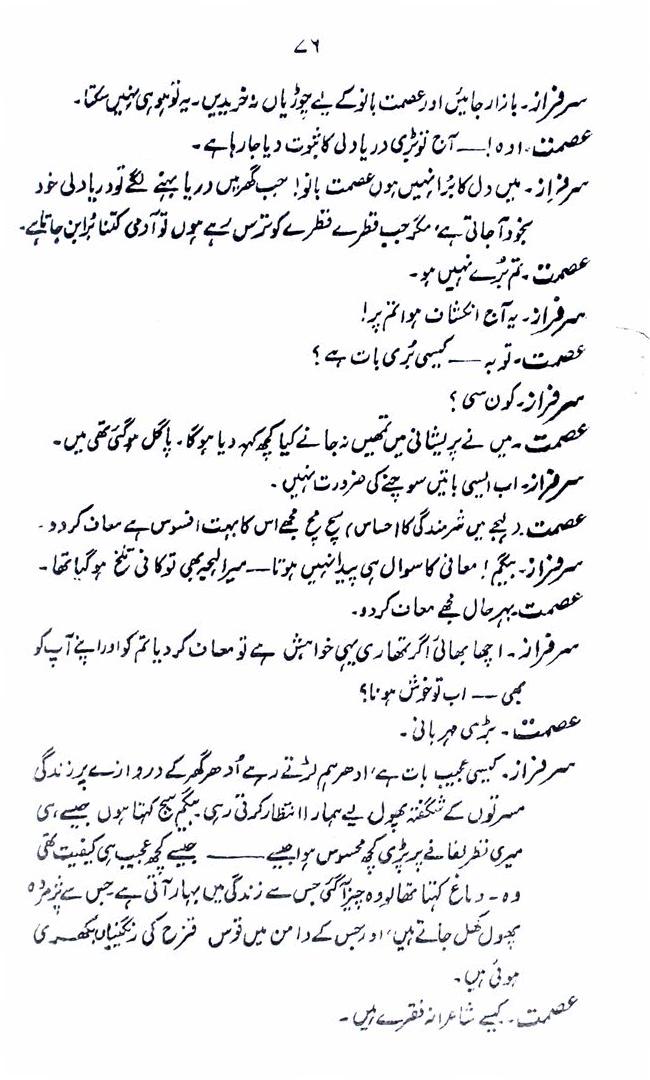 ۷۶
سرفراز۔ بازار جائیں اور عصمت بانو کے لیے چوڑیاں نہ خریدیں۔ یہ تو ہو ہی نہیں سکتا۔
عصمت۔ اوہ! — آج تو بڑی دریا دلی کا ثبوت دیا جارہا ہے۔
سرفراز۔ میں دل کا بُرا نہیں ہوں عصمت بانو! جب گھر میں دریا بہنے لگے تو دریا دلی خود
بخود آجاتی ہے، مگر جب قطرے قطرے کو ترس رہے ہوں تو آدمی کتنا بُرا بن جاتا ہے۔
عصمت۔ تم بُرے نہیں ہو۔
سرفراز۔ یہ آج انکشاف ہوا تم پر!
عصمت۔ توبہ — کیسی بُری بات ہے؟
سرفراز۔ کون سی؟
عصمت۔ میں نے پریشانی میں تمھیں نہ جانے کیا کچھ کہہ دیا ہوگا۔ پاگل ہوگئی تھی میں۔
سرفراز۔ اب ایسی باتیں سوچنے کی ضرورت نہیں۔
عصمت۔ (لہجے میں شرمندگی کا احساس) سچ مچ مجھے اس کا بہت افسوس ہے معاف کردو۔
سرفراز۔ بیگم! معافی کا سوال ہی پیدا نہیں ہوتا — میرا لہجہ بھی تو کافی تلخ ہوگیا تھا۔
عصمت۔ بہرحال مجھے معاف کردو۔
سرفراز۔ اچھا بھائی اگر تمھاری یہی خواہش ہے تو معاف کردیا تم کو اور اپنے آپ کو
بھی — اب تو خوش ہونا؟
عصمت۔ بڑی مہربانی۔
سرفراز۔ کیسی عجیب بات ہے، ادھر ہم لڑتے رہے اُدھر گھر کے دروازے پر زندگی
مسرتوں کے شگفتہ پھول لیے ہمارا انتظار کرتی رہی۔ بیگم سچ کہتا ہوں جیسے ہی
میری نظر لفافے پر پڑی کچھ محسوس ہوا جیسے —— جیسے کچھ عجیب ہی کیفیت تھی
وہ۔ دماغ کہتا تھا لو وہ چیز آگئی جس سے زندگی میں بہار آتی ہے جس سے پژمردہ
پھول کھل جاتے ہیں، اور جس کے دامن میں قوس قزح کی رنگینیاں بکھری
ہوئی ہیں۔
عصمت۔ کیسے شاعرانہ فقرے ہیں۔